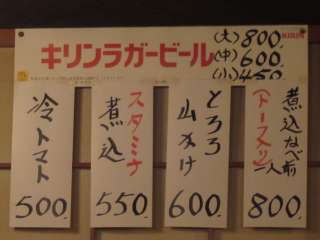 キリンラガービール
(大) 800.
KIRIN
(中) 600.
(小) 450
煮込なべ一人前
(トーフ入り)
800.
とろろ
山かけ
600.
スタミナ
煮込
550-
冷トマト
500-